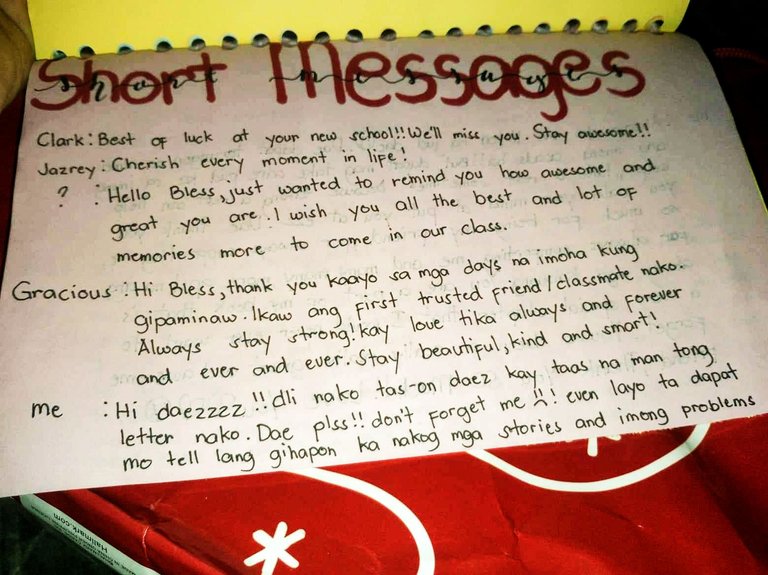 Short Messages
short messages
Clark: Best of luck at your new school!! We'll miss you. Stay awesome!!
Jazrey: Cherish every moment in life!
? : Hello Bless, just wanted to remind you how awesome and
great you are. I wish you all the best and lot of
memories more to come in our class.
Gracious : Hi Bless, thank you kaayo sa mga days na imoha kung
gipaminaw. Ikaw ang first trusted friend/classmate nako.
Always stay strong! kay love tika always and forever
and ever and ever. Stay beautiful, kind and smart!
me : Hi daezzzz!! dli nako tas-on daez kay taas na man tong
letter nako. Dae plss!! don't forget me !! ! even layo ta dapat
mo tell lang gihapon ka nakog mga stories and imong problems
Hallmark.com